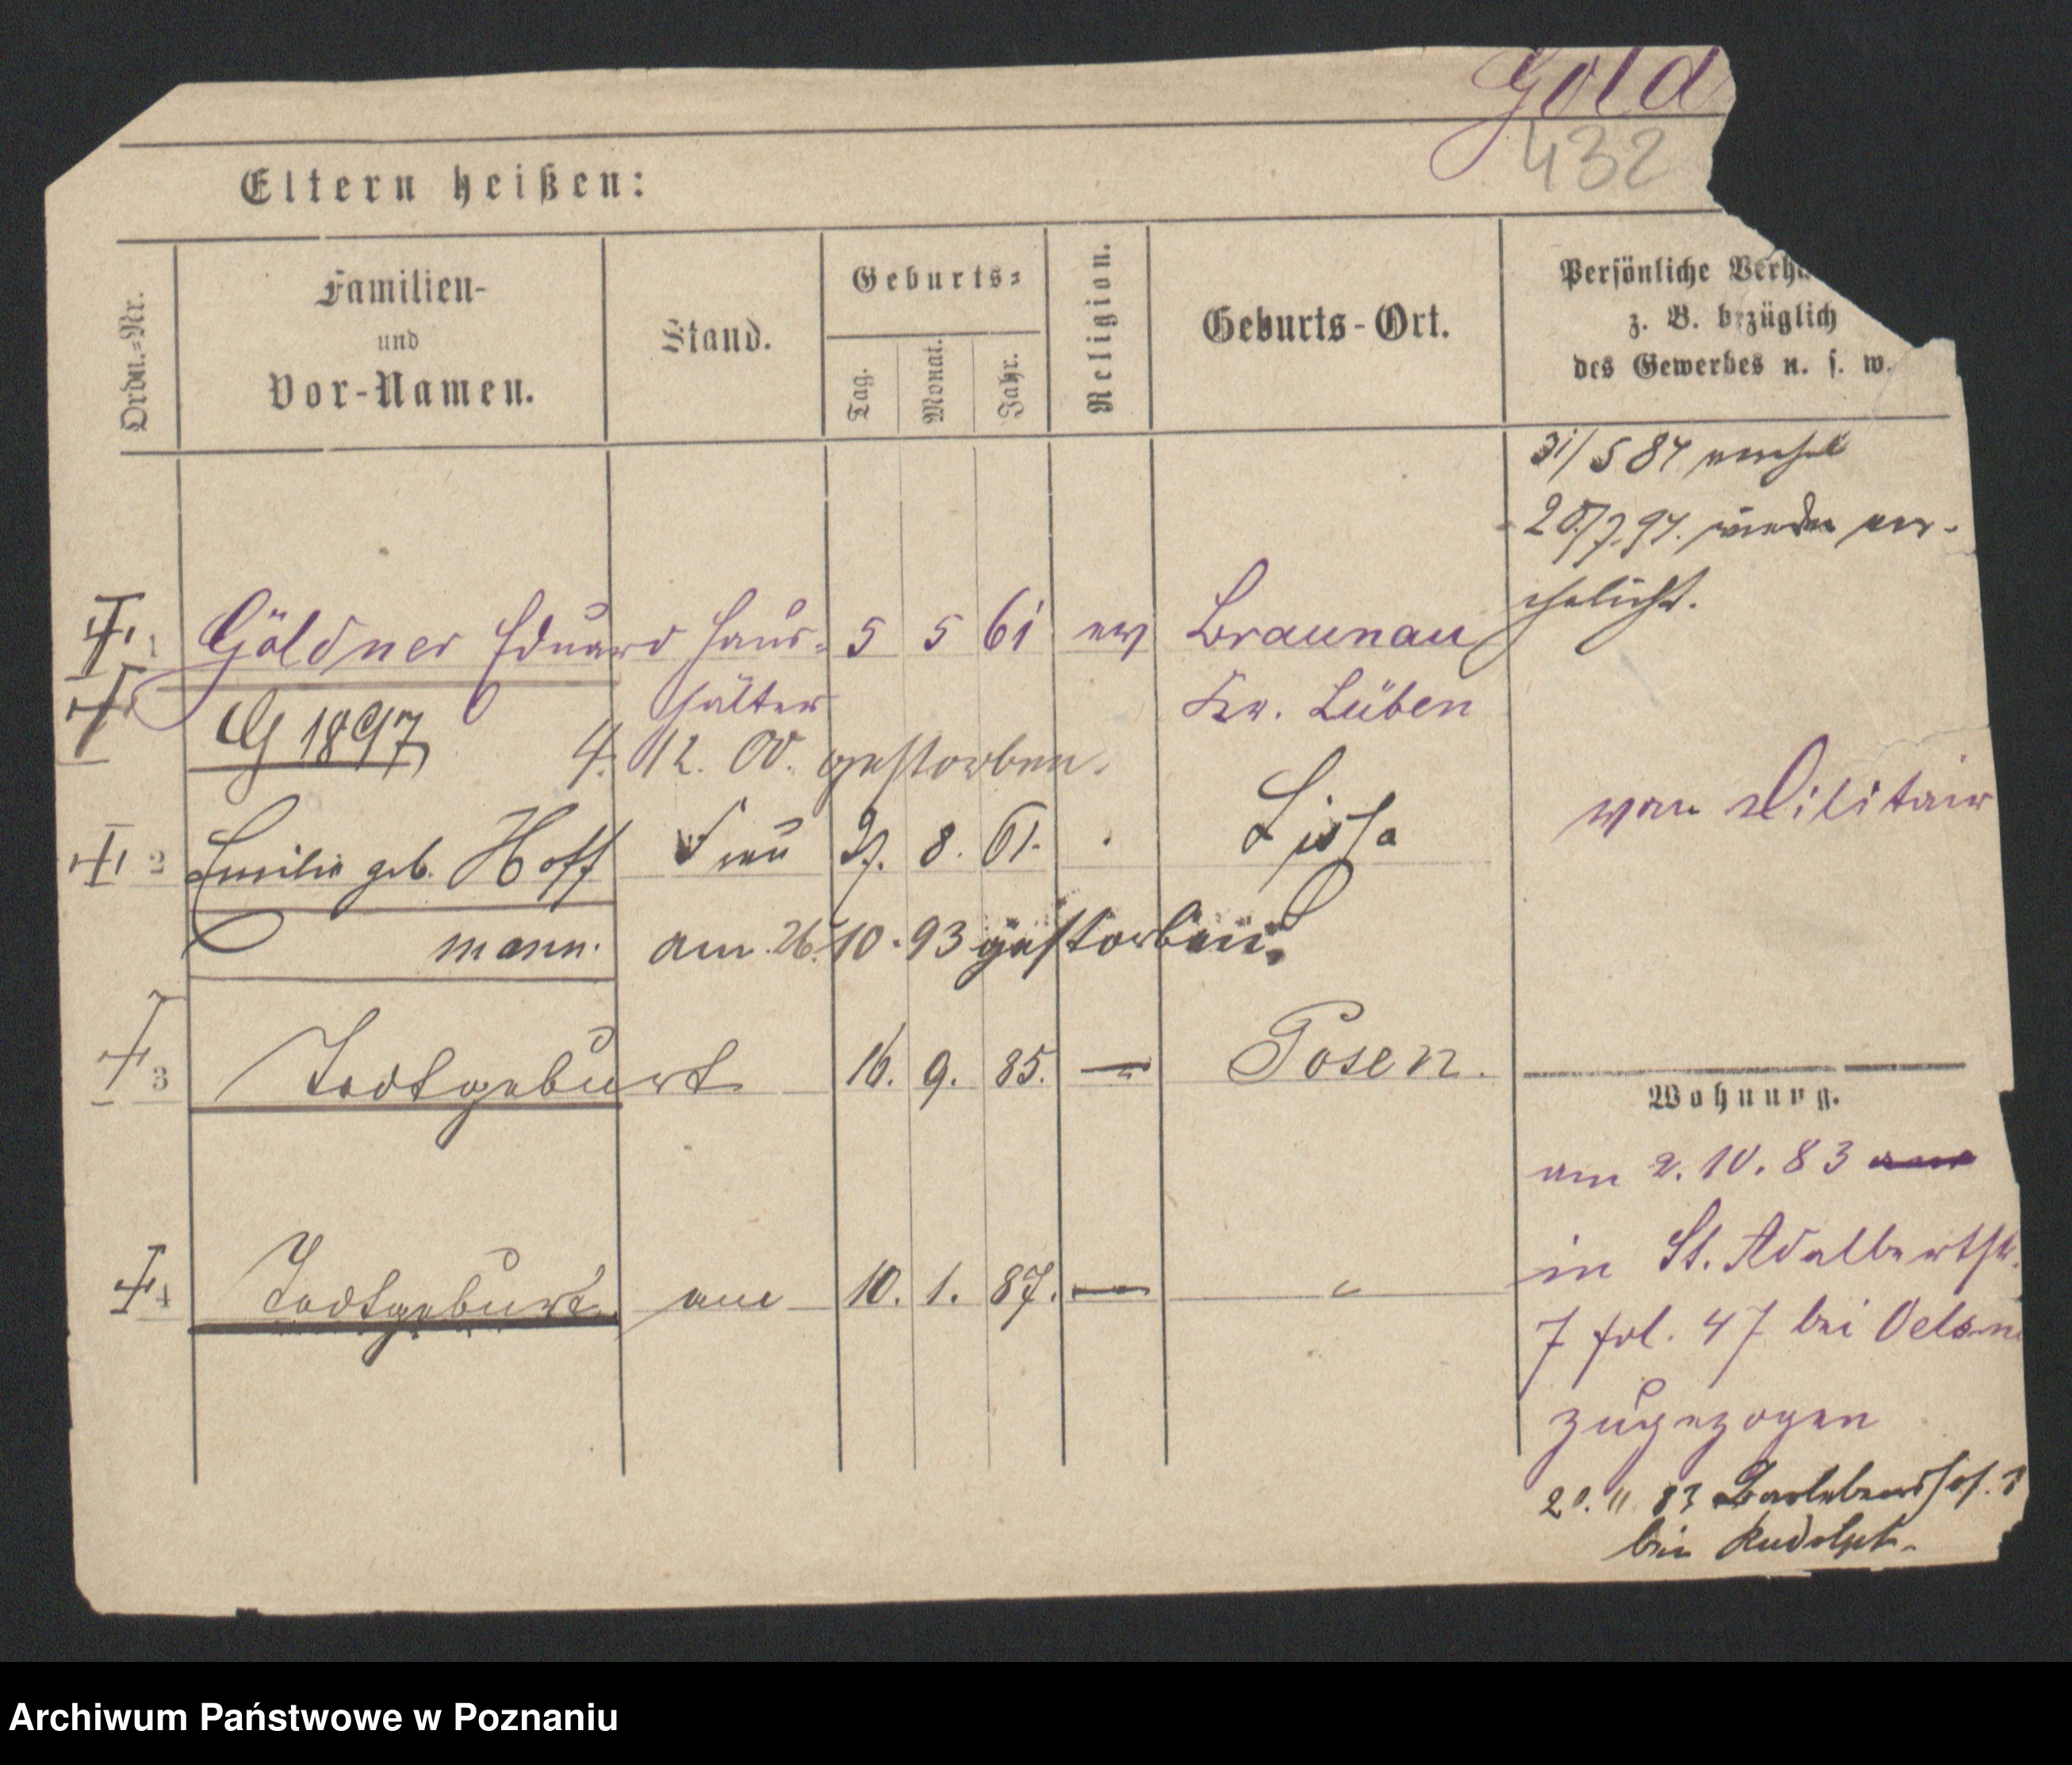 Gold
432
Eltern heißen:
Ordn.-Nr.
Familien-
und
Vor-Namen.
Stand.
Geburts-
Tag.
Monat.
Jahr.
Religion.
Geburts-Ort.
Persönliche Verhä
z. B. bezüglich
des Gewerbes u. s. w.
31/5 84 verehel
20/7. 97. wieder ver-
ehelicht.
1 Göldner Eduard Haus- 5 5 61 ev Braunau
hälter Kr. Lüben
G 1897 4. 12. 00. gestorben.
vom Militair
2 Emilie geb. Hoff Frau 27. 8. 61. Lissa
mann. am 26. 10. 93 gestorben.
3 Todtgeburt 16. 9. 85. — Posen.
Wohnung.
am 2. 10. 83
in St. Adalbertstr.
4 Todtgeburt am 10. 1. 87. — "
7 fol. 47 bei Oelsn
zugezogen
20. 11 83 Bartlebenshof. 3
bei Rudolph.
Archiwum Państwowe w Poznaniu